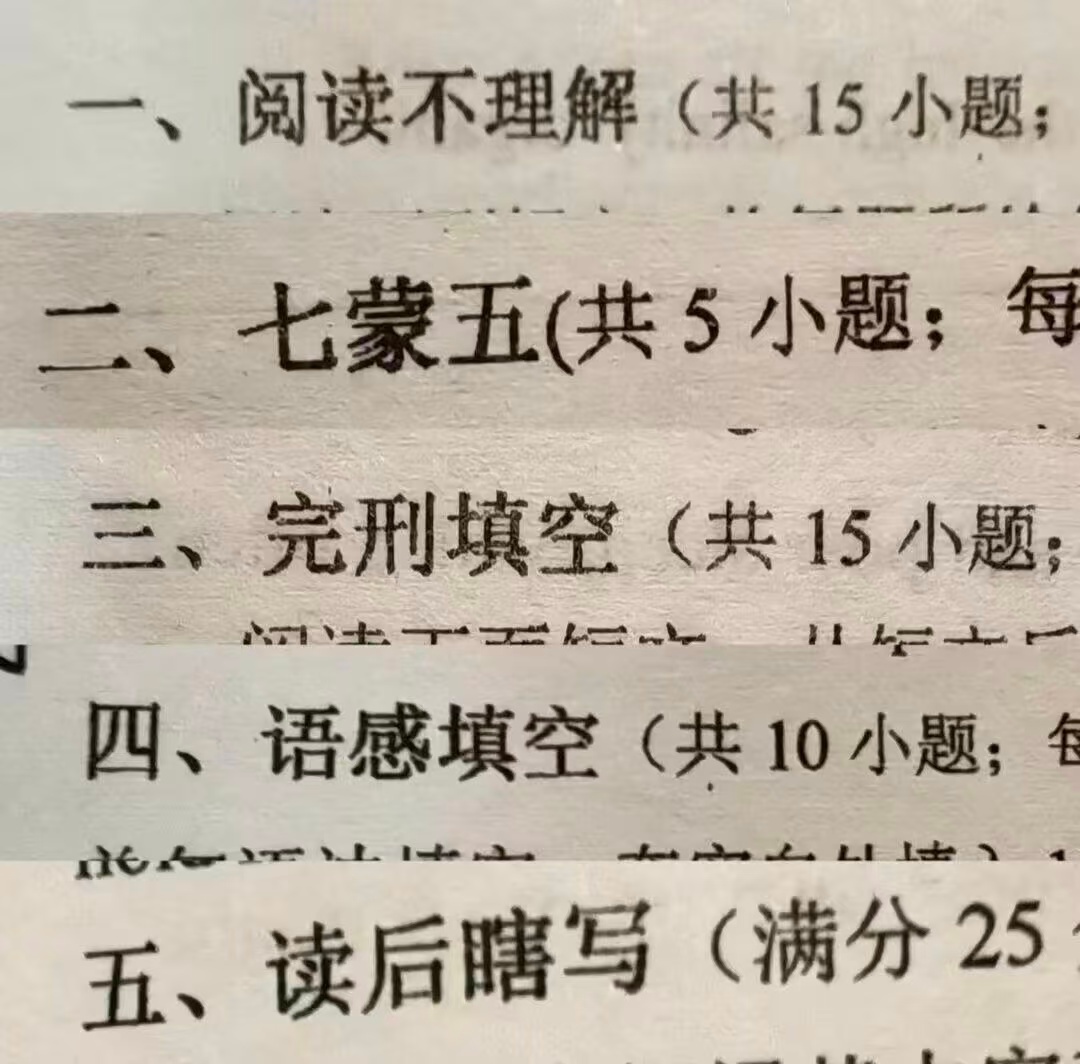 一、阅读不理解（共 15 小题；
二、七蒙五(共 5 小题；每
三、完刑填空（共 15 小题；
四、语感填空（共 10 小题；每
五、读后瞎写（满分 25